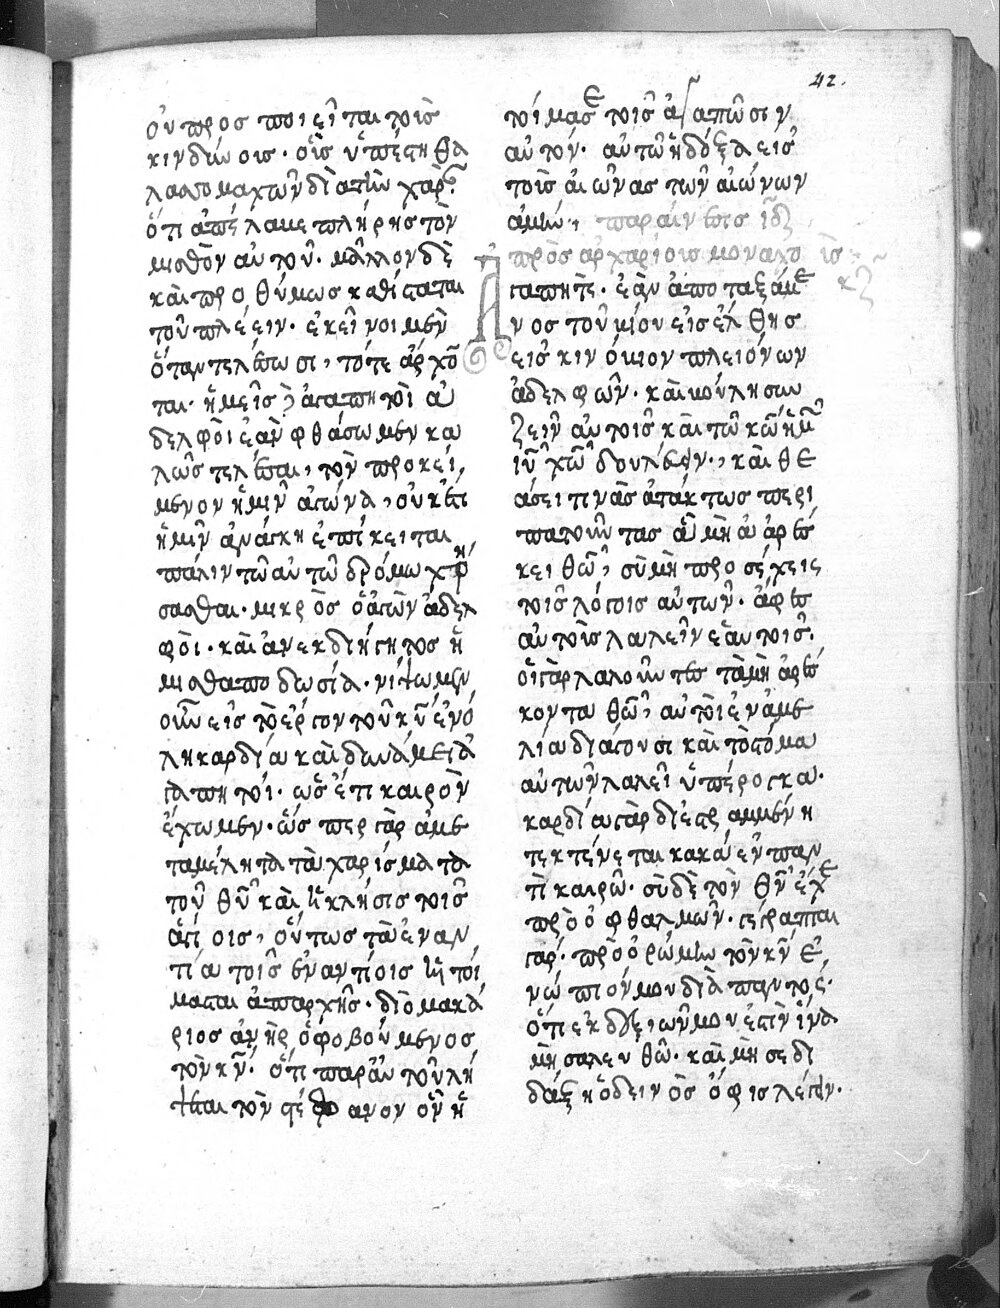 42.
οὐ πρὸς ποιεῖται τοῖς
κινδύνοις· οἷς ὑπέστη θα
λαττομαχῶν διὰ τὴν χαρ
ὅτι ἀπέλαμε πλήρης τὸν
μισθὸν αὐτοῦ· μᾶλλον δὲ
καὶ προθύμως καθίσταται
τοῦ πλέειν· ἐκεῖνοι μὲν
ὅταν τελέσωσι, τότε ἄρχο
ται· ἡμεῖς δὲ ἀγαπητοὶ ἀ
δελφοὶ ἐὰν φθάσωμεν κα
λῶς τελέσαι, τὸν προκεί
μενον ἡμῖν ἀγῶνα, οὐκέτι
ἡμῖν ἀνάγκη ἐπίκειται
πάλιν τῶ αὐτῶ δρόμω χρή
σασθαι· μικρὸς ὁ ἀγὼν ἀδελ
φοὶ· καὶ ἀνεκδιήγητος ἡ
μισθαποδωσία· νίψωμεν
οὖν εἰς τὸ ἔργον τοῦ κῦ ἐν ὅ
λη καρδία καὶ δυνάμει ἀ
γαπητοί· ὡς ἔτι καιρὸν
ἔχωμεν· ὥσπερ γὰρ ἀμε
ταμέλητα τὰ χαρίσματα
τοῦ θῦ καὶ ἡ κλῆσις τοῖς
ἁγίοις, οὕτως τὰ ἐναν
τία τοῖς ἐναντίοις ἡτοί
μασται ἀπαρχῆς· διὸ μακά
ριος ἀνὴρ ὁ φοβούμενος
τὸν κν· ὅτι παρ' αὐτοῦ λή
ψεται τὸν στέφανον ὃν ἡ
τοίμασε τοῖς ἀγαπῶσιν
αὐτόν· αὐτῶ ἡ δόξα εἰς
τοὺς αἰῶνας τῶν αἰώνων
ἀμήν· παραίνεσις
πρὸς ἀρχαρίους μοναχο
Ἀγαπητὲ· ἐὰν ἀποταξάμε
νος τοῦ βίου εἰσέλθης
εἰς κινόβιον πλειόνων
ἀδελφῶν· καὶ βουλήση
ζεῖν αὐτοῖς καὶ τῶ κῶ ἡμ
ιῦ χῶ δουλεύειν, καὶ θε
άσει τινὰς ἀτάκτως περι
πατοῦντας ἃ μὴ ἀρέσ
κει θῶ, σὺ μὴ προσέχεις
τοῖς λόγοις αὐτῶν· ἄφες
αὐτοὺς λαλεῖν ἑαυτοῖς·
οἱ γὰρ λαλοῦντες τὰ μὴ ἀρέσ
κοντα θῶ, αὐτοὶ ἐν ἀμε
λία διάγουσι καὶ τὸ στόμα
αὐτῶν λαλεῖ ὑπέρογκα·
καρδία γὰρ διεστραμμένη
τεκτένεται κακὰ ἐν παν
τὶ καιρῶ· σὺ δὲ τὸν θν ἔχε
πρὸ ὀφθαλμῶν· γέγραπται
γάρ· προορώμην τὸν κν ἐ
νώπιόν μου διὰ παντός·
ὅτι ἐκ δεξιῶν μου ἐστὶν ἵνα
μὴ σαλευθῶ· καὶ μή σε δι
δάξη ὁ δεινὸς ὄφις λέγειν·